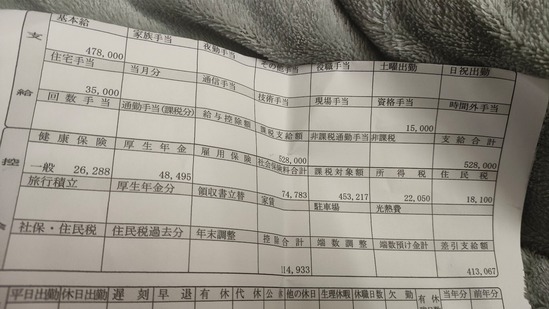 支給
基本給 家族手当 夜勤手当 その他手当 役職手当 土曜出勤 日祝出勤
478,000
住宅手当 当月分 通信手当 技術手当 現場手当 資格手当 時間外手当
35,000 15,000
回数手当 通勤手当(課税分) 給与控除額 課税支給額 非課税通勤手当 非課税 支給合計
528,000 528,000
控
健康保険 厚生年金 雇用保険 社会保険料合計 課税対象額 所得税 住民税
一般 26,288 48,495 74,783 453,217 22,050 18,100
旅行積立 厚生年金分 領収書立替 家賃 駐車場 光熱費
社保・住民税 住民税過去分 年末調整 控除合計 端数調整 端数預け金計 差引支給額
114,933 413,067
平日出勤 休日出勤 遅刻 早退 有休 代休 公休 他の休日 生理休暇 休職日数 欠勤 有休 当年分 前年分